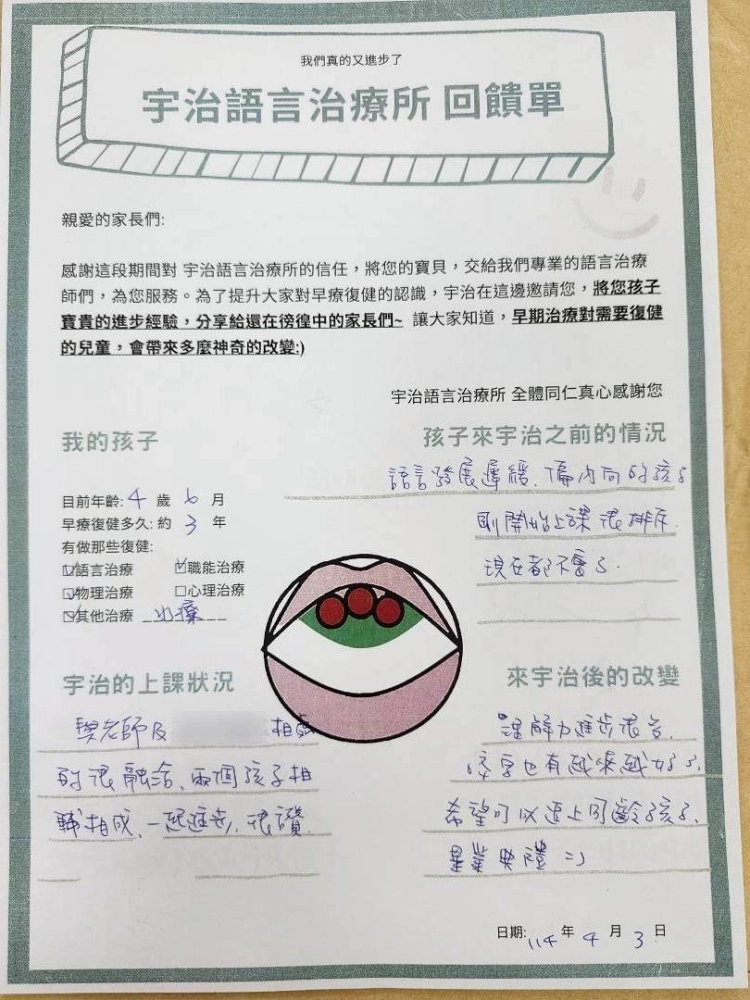 我們真的又進步了
宇治語言治療所 回饋單
親愛的家長們:
感謝這段期間對 宇治語言治療所的信任，將您的寶貝，交給我們專業的語言治療
師們，為您服務。為了提升大家對早療復健的認識，宇治在這邊邀請您，將您孩子
寶貴的進步經驗，分享給還在徬徨中的家長們~ 讓大家知道，早期治療對需要復健
的兒童，會帶來多麼神奇的改變:)
宇治語言治療所 全體同仁真心感謝您
我的孩子
目前年齡: 4 歲 6 月
早療復健多久: 約 3 年
有做那些復健:
☑語言治療 ☑職能治療
☑物理治療 □心理治療
☑其他治療 水療
孩子來宇治之前的情況
語言發展遲緩、偏內向的孩子
剛開始上課很排斥.
現在都不會了.
宇治的上課狀況
與老師及 相處
的很融洽、兩個孩子相
輔相成、一起進步, 很讚.
來宇治後的改變
理解力進步很多、
咬字也有越來越好了.
希望可以追上同齡孩子.
畢業典禮 =)
日期: 114 年 4 月 3 日